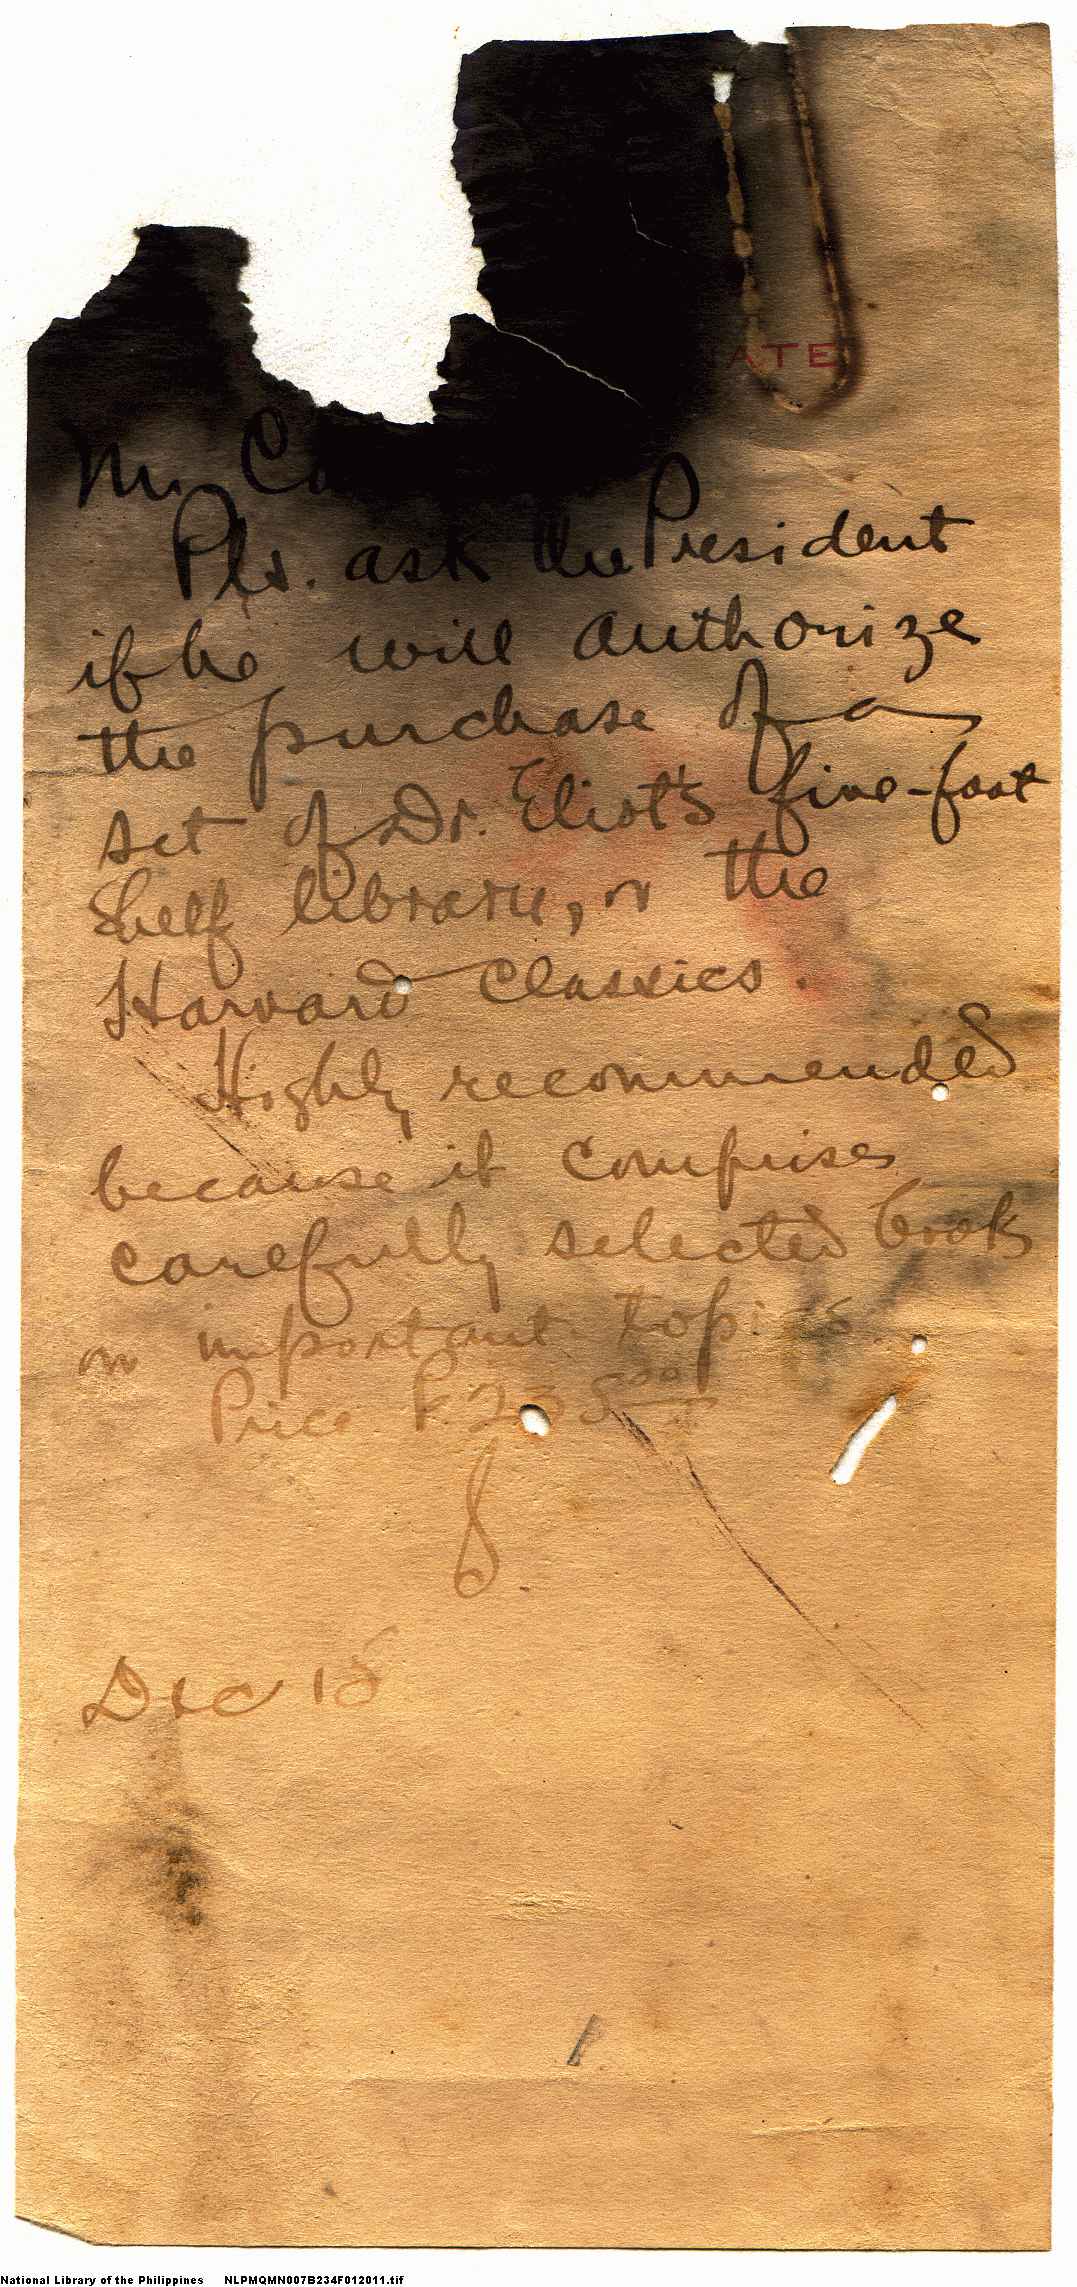 ATE
Mr. Ca
Pls. ask the President
if he will authorize
the purchase of a
set of Dr. Eliot's five-foot
Shelf library, or the
Harvard Classics.
Highly recommended
because it comprises
carefully selected books
on important topics.
Price P. 235.00
Dec 18
National Library of the Philippines NLPMQMN007B234F012011.tif